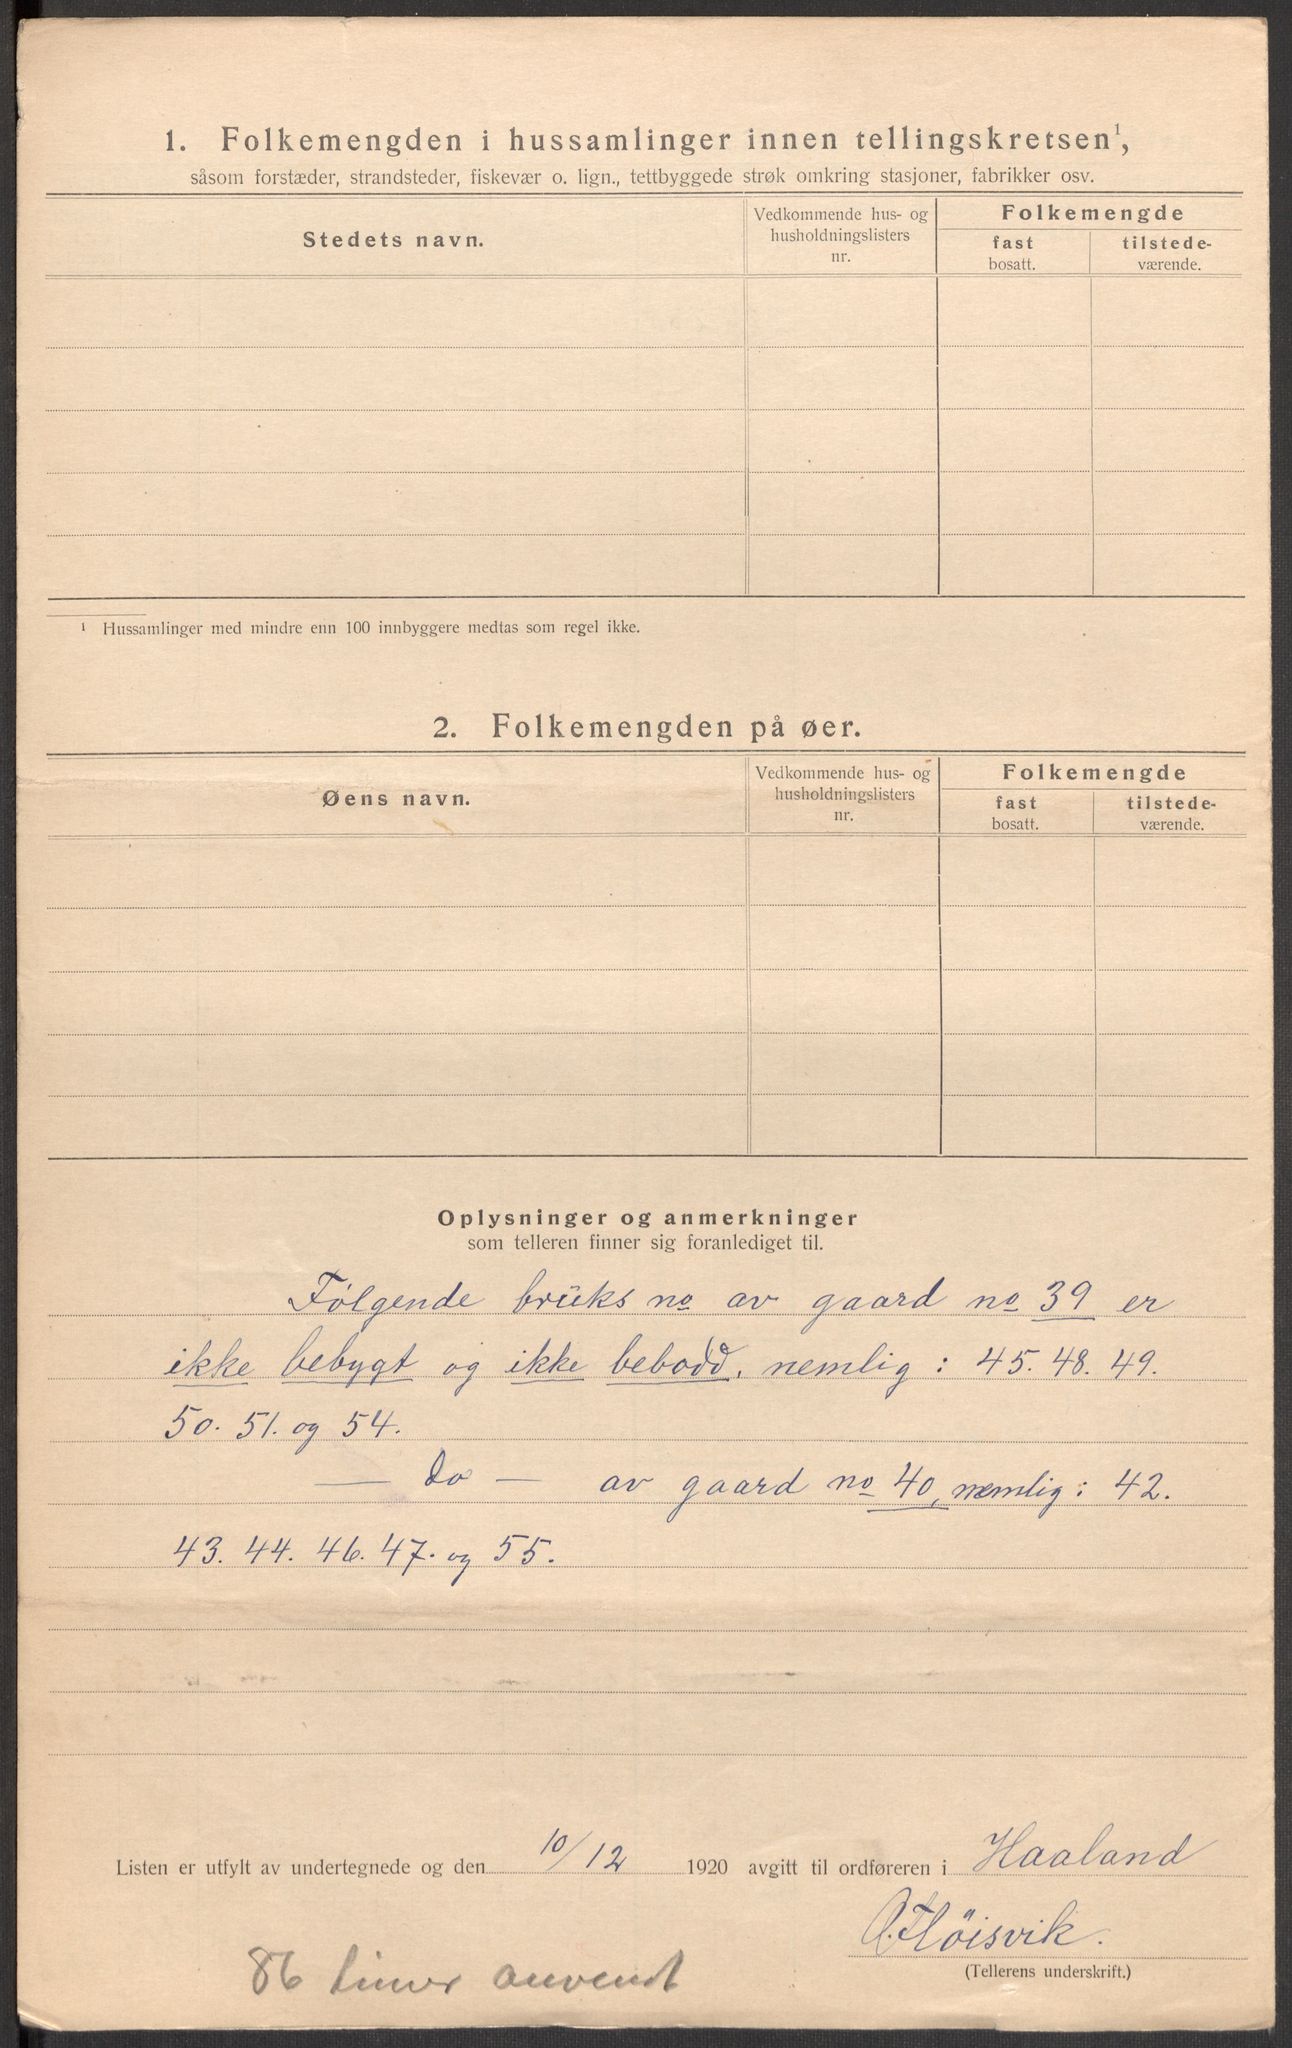 1. Folkemengden i hussamlinger innen tellingskretsen¹,
såsom forstæder, strandsteder, fiskevær o. lign., tettbyggede strøk omkring stasjoner, fabrikker osv.
Stedets navn.
Vedkommende hus- og
husholdningslisters
nr.
Folkemengde
fast
bosatt.
tilstede-
værende.
¹ Hussamlinger med mindre enn 100 innbyggere medtas som regel ikke.
2. Folkemengden på øer.
Øens navn.
Vedkommende hus- og
husholdningslisters
nr.
Folkemengde
fast
bosatt.
tilstede-
værende.
Oplysninger og anmerkninger
som telleren finner sig foranlediget til.
Følgende bruks no av gaard no 39 er
ikke bebygt og ikke bebodd, nemlig: 45. 48. 49.
50. 51. og 54.
— Do — av gaard no 40, nemlig: 42.
43. 44. 46. 47. og 55.
Listen er utfylt av undertegnede og den 10/12 1920 avgitt til ordføreren i Haaland
O. Fløisvik.
(Tellerens underskrift.)
86 timer anvendt